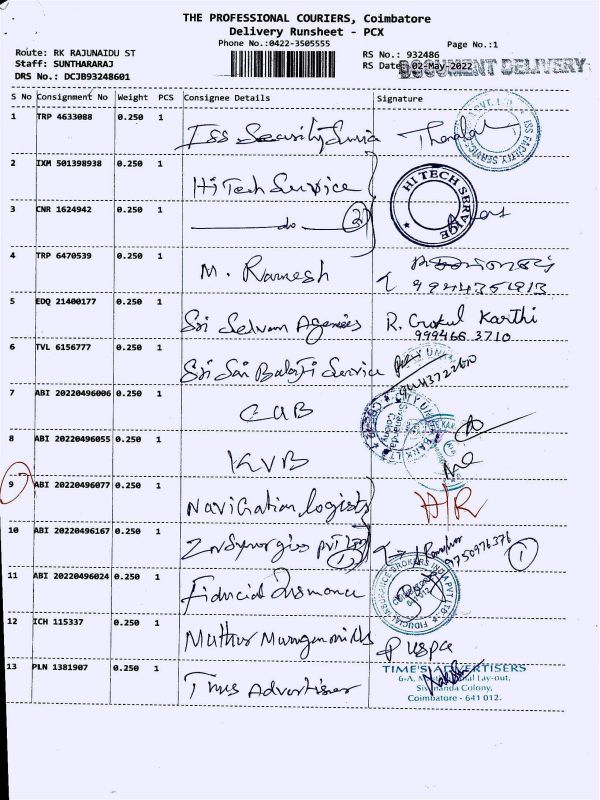 THE PROFESSIONAL COURIERS, Coimbatore
Delivery Runsheet - PCX
Phone No.:0422-3505555
Page No.:1
Route: RK RAJUNAIDU ST
RS No.: 932486
Staff: SUNTHARARAJ
RS Date: 02-May-2022
DOCUMENT DELIVERY
DRS No.: DCJB93248601
S No Consignment No Weight PCS Consignee Details Signature
1 TRP 4633088 0.250 1 Iss Security
ISS FACILITY SERVIC
2 IXM 501398938 0.250 1 Hi Tech Service
HI TECH SERVICE
3 CNR 1624942 0.250 1 do 2
4 TRP 6470539 0.250 1 M. Ramesh
5 EDQ 21400177 0.250 1 Sri Selvam Agencies R. Gokul Karthi
999466 3710
6 TVL 6156777 0.250 1 Sri Sai Balaji Service
7 ABI 20220496006 0.250 1 CUB
Sivananda Colony
8 ABI 20220496055 0.250 1 KVB
9 ABI 20220496077 0.250 1 Navigation logists H/R
10 ABI 20220496167 0.250 1 Indsynergiss pvt Ltd
9750976376 1
11 ABI 20220496024 0.250 1 Fiducial
FIDUCIAL INSURANCE BROKERS INDIA PVT. LTD.
12 ICH 115337 0.250 1 Muthu Puspa
13 PLN 1381907 0.250 1 Tims Advertiser
TIME'S ADVERTISERS
6-A, Lay-out,
Sivananda Colony,
Coimbatore - 641 012.